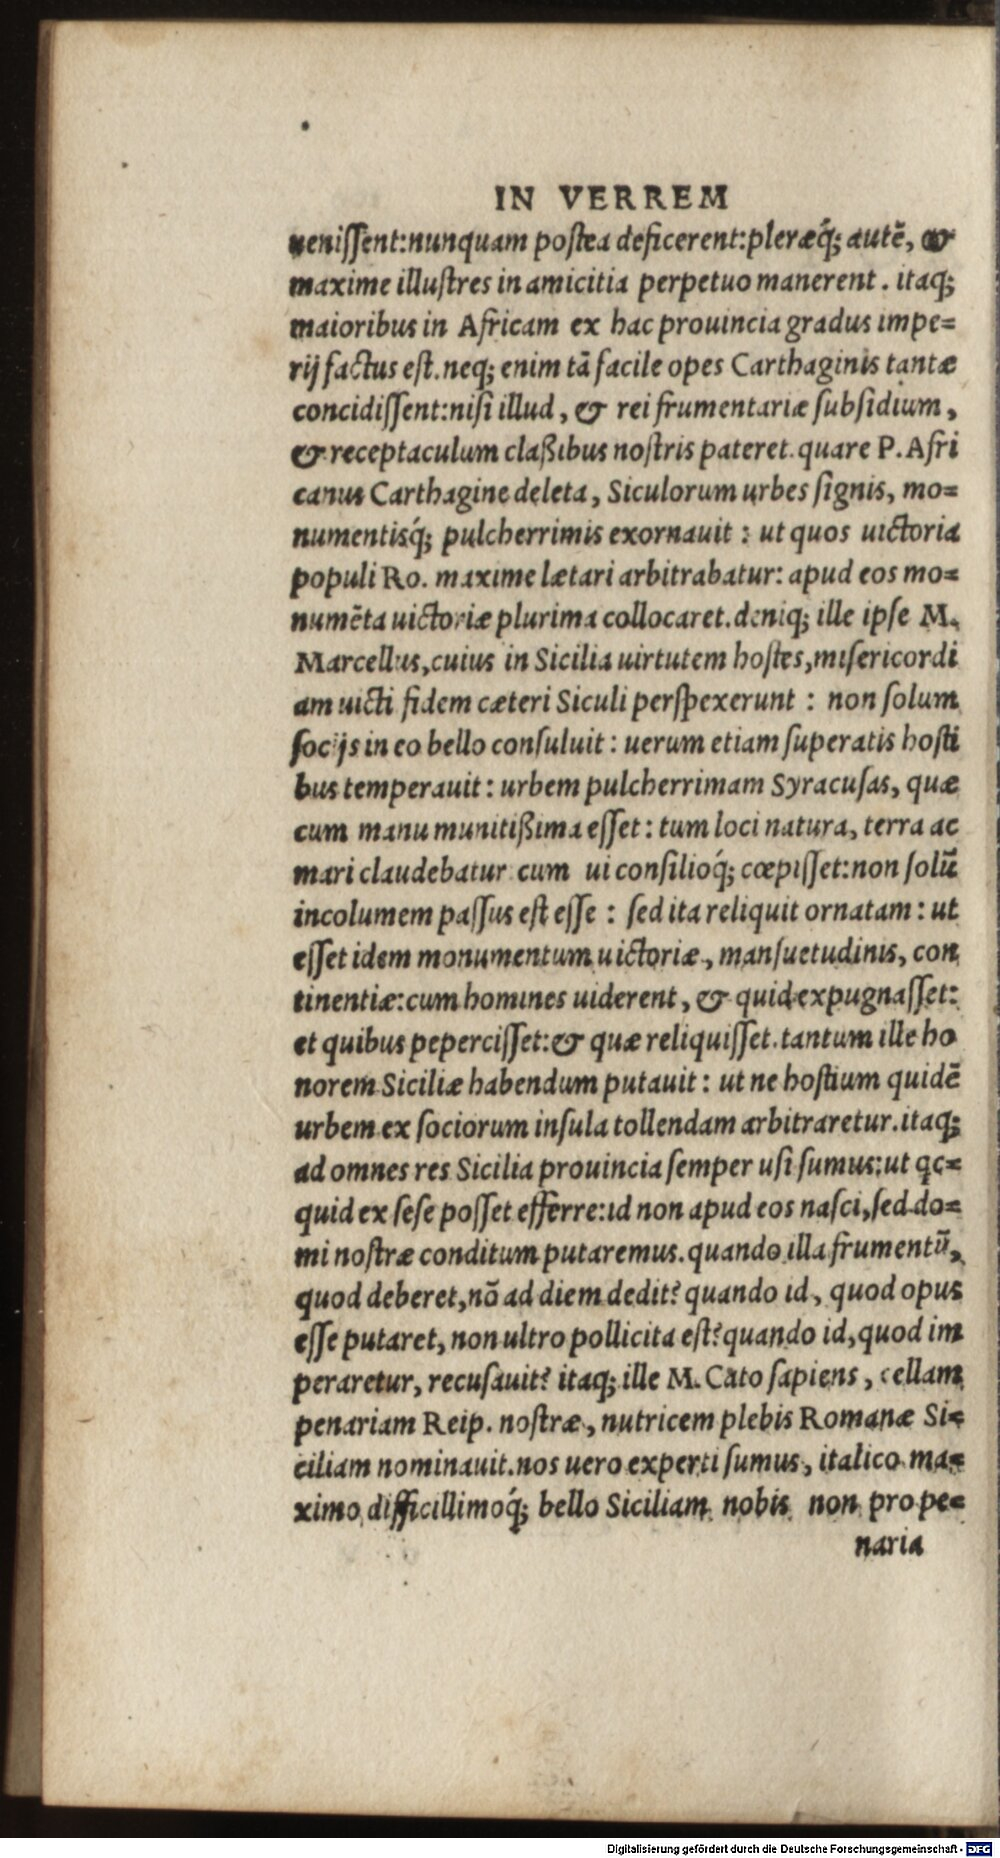 IN VERREM
ueniſſent:nunquam poſtea deficerent:pleræq́; autē, &
maxime illuſtres in amicitia perpetuo manerent. itaq;
maioribus in Africam ex hac prouincia gradus impe=
rij factus eſt. neq; enim tā facile opes Carthaginis tantæ
concidiſſent:niſi illud, & rei frumentariæ ſubſidium,
& receptaculum claßibus noſtris pateret. quare P. Afri
canus Carthagine deleta, Siculorum urbes ſignis, mo=
numentisq́; pulcherrimis exornauit : ut quos uictoria
populi Ro. maxime lætari arbitrabatur: apud eos mo=
numēta uictoriæ plurima collocaret. deniq; ille ipſe M.
Marcellus,cuius in Sicilia uirtutem hoſtes,miſericordi
am uicti fidem cæteri Siculi perſpexerunt : non ſolum
ſocijs in eo bello conſuluit : uerum etiam ſuperatis hoſti
bus temperauit : urbem pulcherrimam Syracuſas, quæ
cum manu munitißima eſſet : tum loci natura, terra ac
mari claudebatur cum ui conſilioq́; cœpiſſet:non ſolū
incolumem paſſus eſt eſſe : ſed ita reliquit ornatam : ut
eſſet idem monumentum uictoriæ, manſuetudinis, con
tinentiæ:cum homines uiderent, & quid expugnaſſet:
et quibus peperciſſet:& quæ reliquiſſet. tantum ille ho
norem Siciliæ habendum putauit : ut ne hoſtium quidē
urbem ex ſociorum inſula tollendam arbitraretur. itaq;
ad omnes res Sicilia prouincia ſemper uſi ſumus:ut qc=
quid ex ſeſe poſſet efferre:id non apud eos naſci,ſed do=
mi noſtræ conditum putaremus. quando illa frumentū,
quod deberet,nō ad diem dedit? quando id, quod opus
eſſe putaret, non ultro pollicita eſt? quando id,quod im
peraretur, recuſauit? itaq; ille M. Cato ſapiens, cellam
penariam Reip. noſtræ, nutricem plebis Romanæ Si=
ciliam nominauit. nos uero experti ſumus, italico ma=
ximo difficillimoq́; bello Siciliam nobis non pro pe=
naria
Digitalisierung gefördert durch die Deutsche Forschungsgemeinschaft - DFG